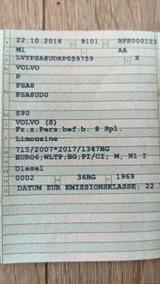 22.10.2018 9101 BFH000123
M1 AA
LVYPSA8UDKP059759 X
VOLVO
P
PSA8
PSA8UD0
S90
VOLVO (S)
Fz.z.Pers.bef.b. 8 Spl.
Limousine
715/2007*2017/1347BG
EURO6;WLTP;BG;PI/CI; M, N1 I
Diesel
0002 36BG 1969
DATUM ZUR EMISSIONSKLASSE: 22.